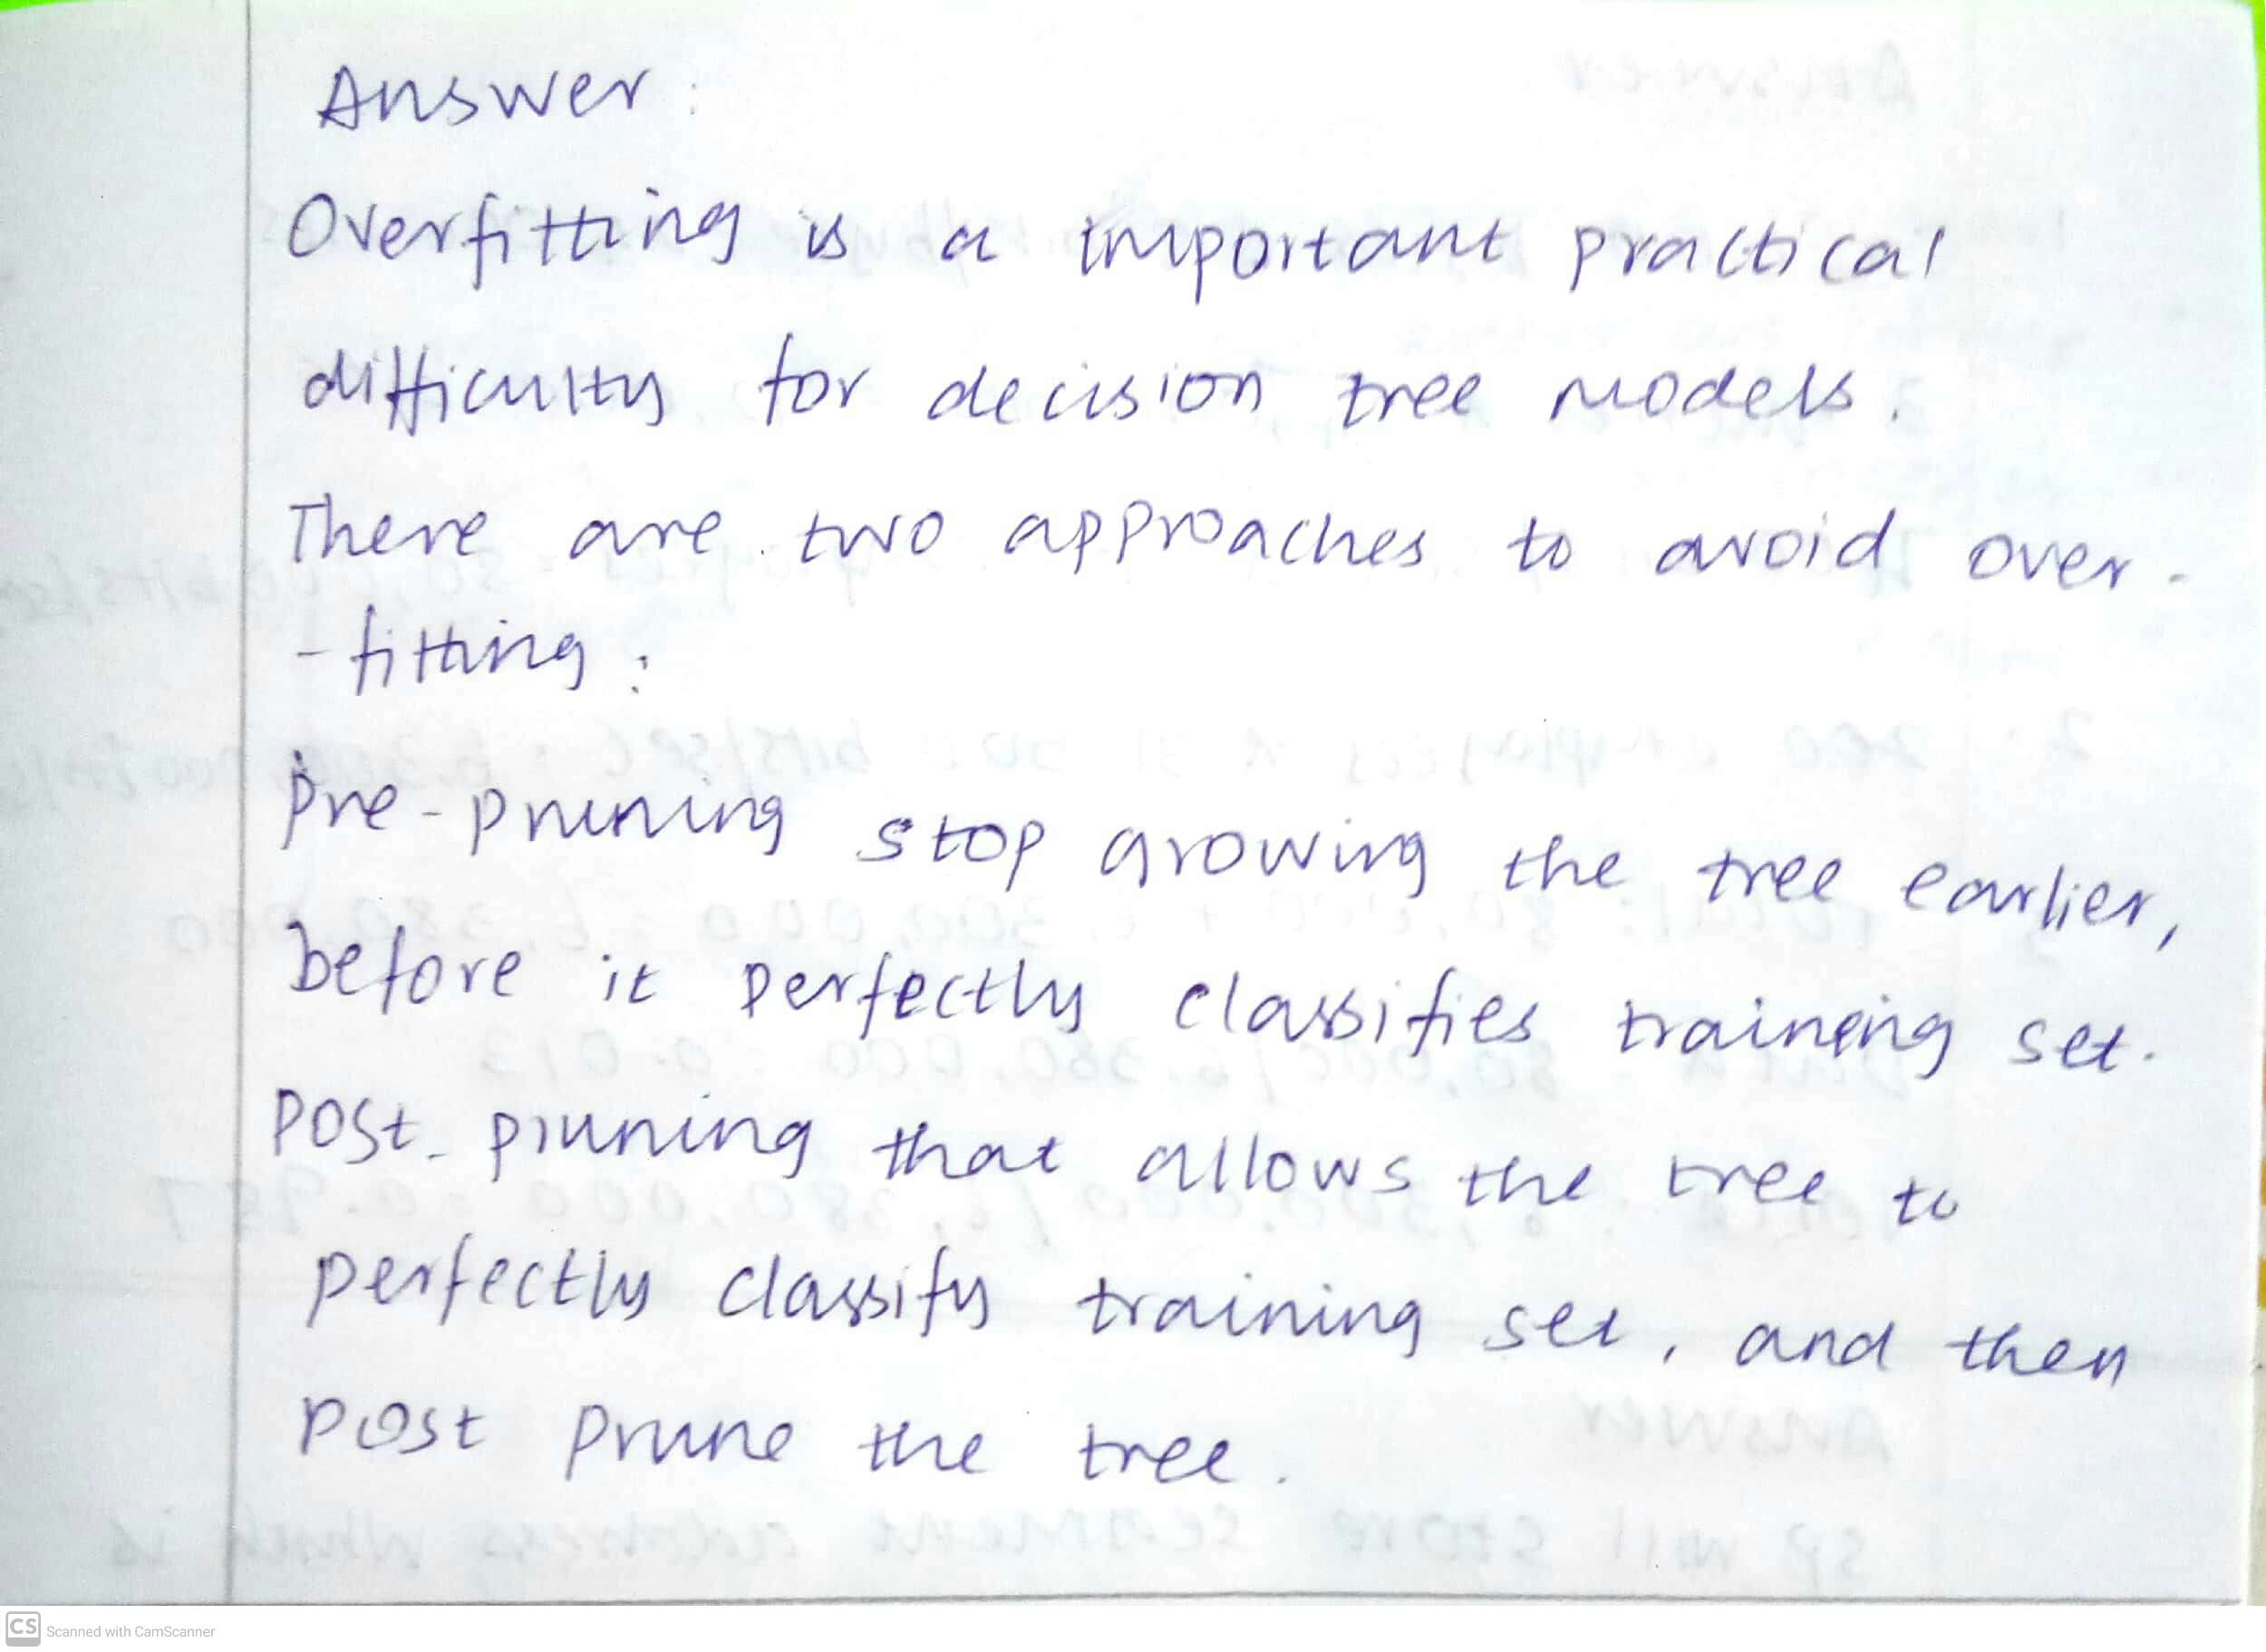 Answer:
Overfitting is a important practical
difficulty for decision tree models.
There are two approaches to avoid over-
-fitting:
Pre-pruning stop growing the tree earlier,
before it perfectly classifies training set.
Post-pruning that allows the tree to
perfectly classify training set, and then
post prune the tree.
CS Scanned with CamScanner